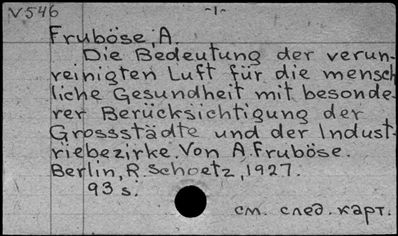 V546
-1-
Fruböse, A.
Die Bedeutung der verun-
reinigten Luft für die mensch
liche Gesundheit mit besonde-
rer Berücksichtigung der
Grossstädte und der Indust-
riebezirke. Von A. Fruböse.
Berlin, R. Schoetz, 1927.
93 s.
см. след. карт.